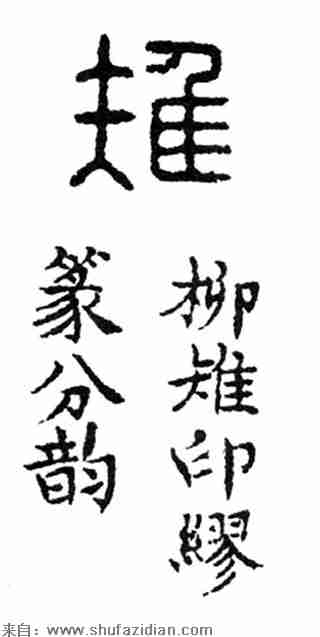 雉
柳雉印繆
篆分韵
来自：www.shufazidian.com